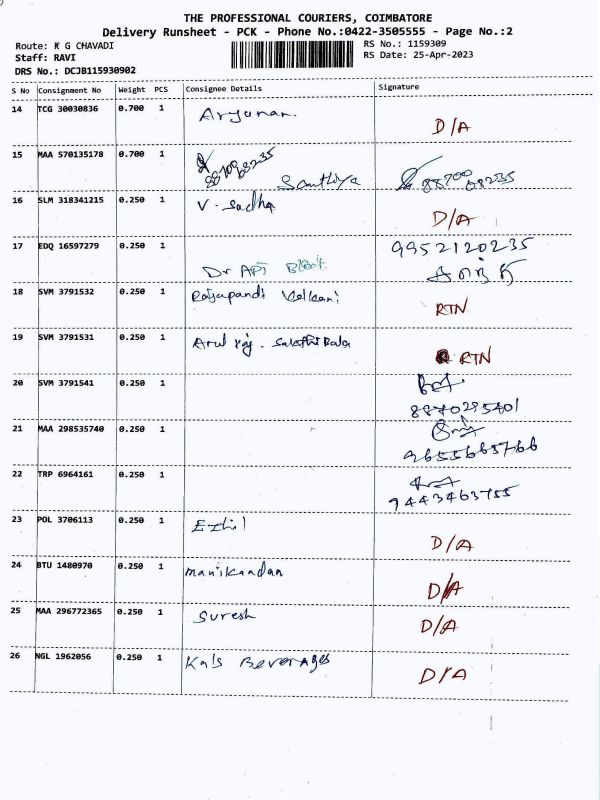 THE PROFESSIONAL COURIERS, COIMBATORE
Delivery Runsheet - PCK - Phone No.:0422-3505555 - Page No.:2
Route: K G CHAVADI
RS No.: 1159309
Staff: RAVI
RS Date: 25-Apr-2023
DRS No.: DCJB115930902
S No Consignment No Weight PCS Consignee Details Signature
14 TCG 30030836 0.700 1
D/A
15 MAA 570135178 0.700 1 Santhiya
16 SLM 318341215 0.250 1 V. Sadha D/A
17 EDQ 16597279 0.250 1 9952120235
Dr APJ
18 SVM 3791532 0.250 1 Rajapandi RTN
19 SVM 3791531 0.250 1 Arul raj. RTN
20 SVM 3791541 0.250 1
8870295401
21 MAA 298535740 0.250 1
9655665766
22 TRP 6964161 0.250 1
9443463755
23 POL 3706113 0.250 1 Ezhil D/A
24 BTU 1480970 0.250 1 Manikandan D/A
25 MAA 296772365 0.250 1 Suresh D/A
26 NGL 1962056 0.250 1 Kals Beverages D/A